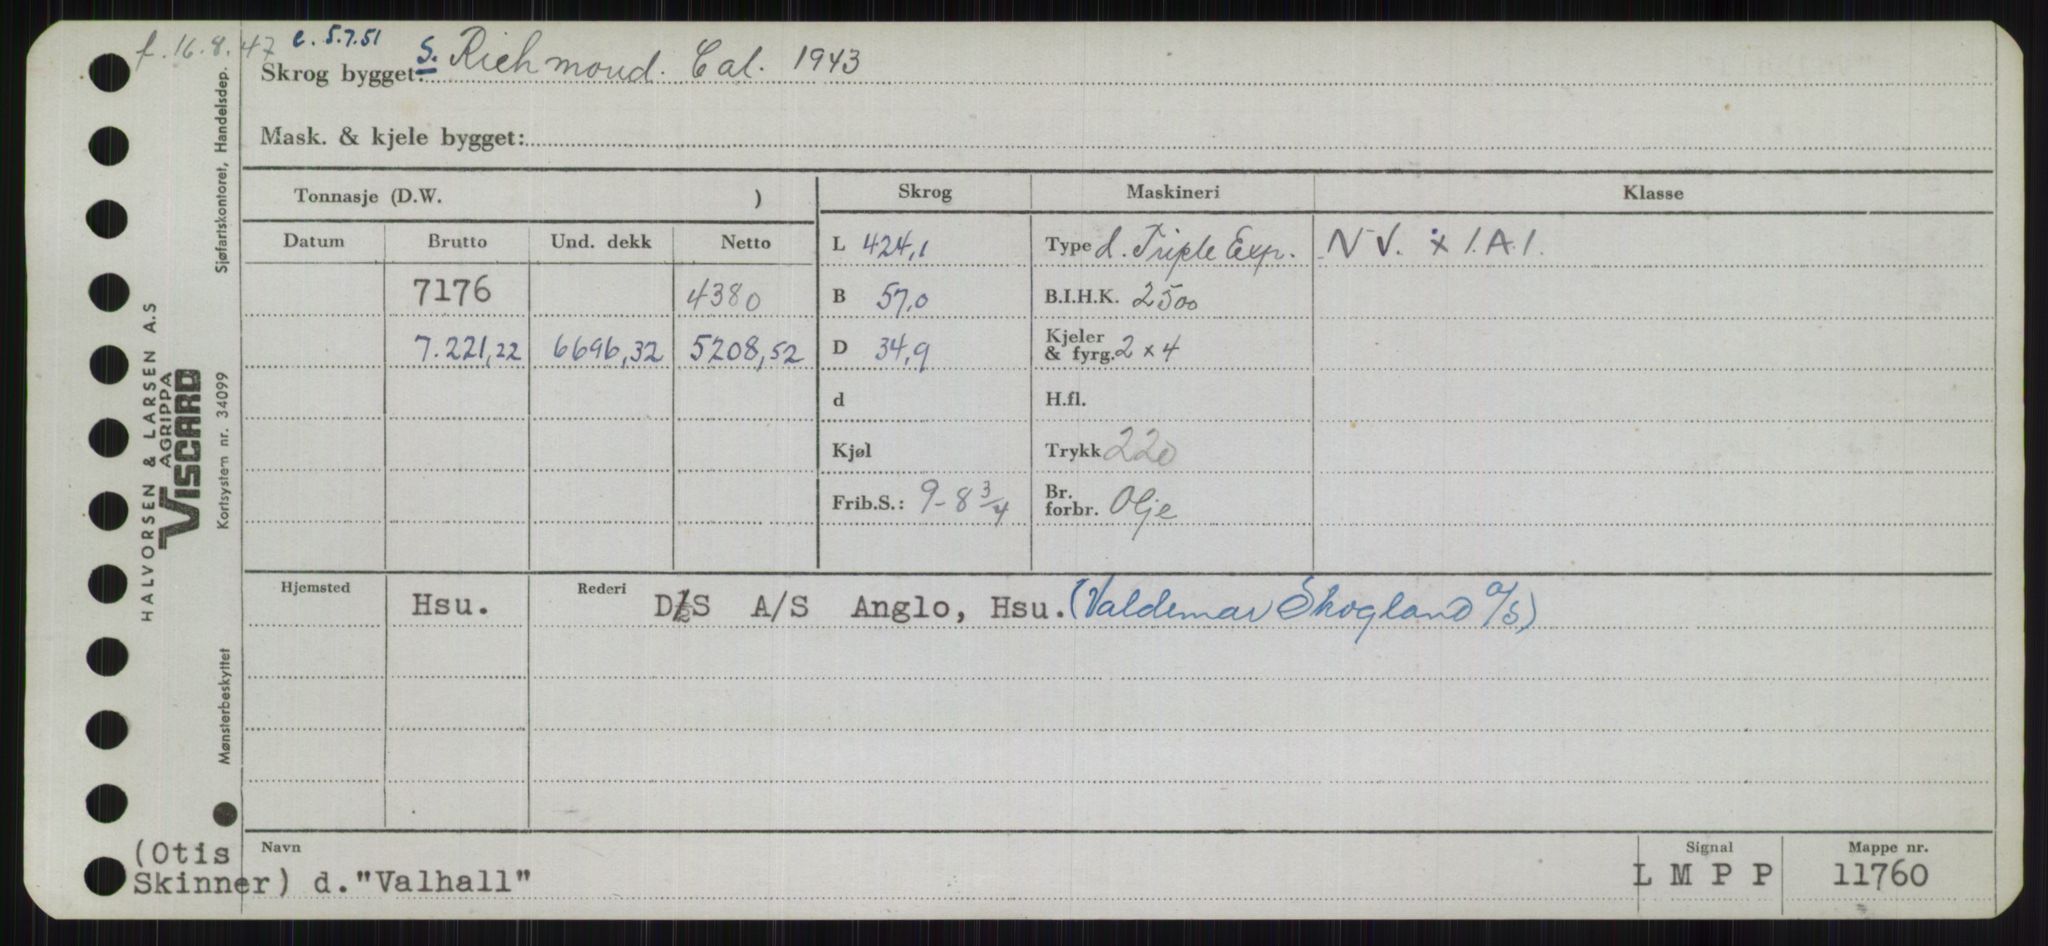 f. 16.8.47 e. 5.7.51
Skrog bygget: S. Richmond. Cal. 1943
Mask. & kjele bygget:
Tonnasje (D.W. )
Skrog
Maskineri
Klasse
Datum Brutto Und. dekk Netto
7176 4380
7.221,22 6696,32 5208,52
L 424,1
B 57,0
D 34,9
d
Kjøl
Frib.S.: 9-8 3/4
Type d. Triple Exp.
B.I.H.K. 2500
Kjeler
& fyrg. 2 x 4
H.fl.
Trykk 220
Br.
forbr. Olje
N V. x 1.A.1.
Hjemsted Hsu. Rederi D/S A/S Anglo, Hsu. (Valdemar Skogland a/s)
(Otis
Skinner) d."Valhall"
Navn
Signal
L M P P
Mappe nr.
11760
HALVORSEN & LARSEN A.S
AGRIPPA
VISCARD
Sjøfartskontoret, Handelsdep.
Kortsystem nr. 34099
Mønsterbeskyttet